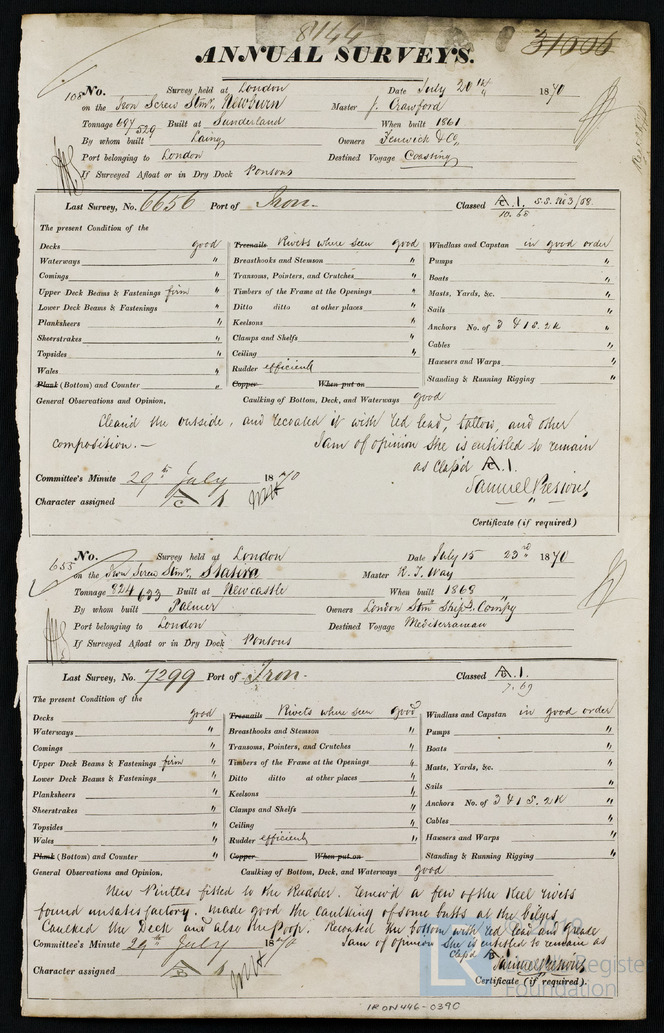 8144
31006
ANNUAL SURVEYS.
108 No. Survey held at London Date July 20th 1870
on the Iron Screw Stmr, Newburn Master J. Crawford
Tonnage 687/529 Built at Sunderland When built 1861
By whom built Laing Owners Fenwick & Co,
Port belonging to London Destined Voyage Coasting
If Surveyed Afloat or in Dry Dock Ponsons
Last Survey, No. 6656 Port of Iron. Classed A.1. S.S. No 3/68
10.68
The present Condition of the
Decks good Treenails Rivets where seen good Windlass and Capstan in good order
Waterways " Breasthooks and Stemson " Pumps "
Comings " Transoms, Pointers, and Crutches " Boats "
Upper Deck Beams & Fastenings firm " Timbers of the Frame at the Openings " Masts, Yards, &c. "
Lower Deck Beams & Fastenings " Ditto ditto at other places " Sails "
Planksheers " Keelsons " Anchors No. of 3 & 1 S. 2 K "
Sheerstrakes " Clamps and Shelfs " Cables "
Topsides " Ceiling " Hawsers and Warps "
Wales " Rudder efficient Standing & Running Rigging "
Plank (Bottom) and Counter " Copper When put on
General Observations and Opinion, Caulking of Bottom, Deck, and Waterways good
Clean'd the outside, and recoated it with red lead, tallow, and other
composition.— I am of opinion she is entitled to remain
as Class'd A.1.
Samuel Pressous
Committee's Minute 29th July 1870
Character assigned A 1
Certificate (if required)
655 No. Survey held at London Date July 15 23rd 1870
on the Iron Screw Stmr, Statira Master R. T. Way
Tonnage 824/633 Built at Newcastle When built 1868
By whom built Palmer Owners London Stm Ship. Compy
Port belonging to London Destined Voyage Mediterranean
If Surveyed Afloat or in Dry Dock Ponsons
Last Survey, No. 7299 Port of Iron. Classed A.1.
7.69
The present Condition of the
Decks good Treenails Rivets where seen good Windlass and Capstan in good order
Waterways " Breasthooks and Stemson " Pumps "
Comings " Transoms, Pointers, and Crutches " Boats "
Upper Deck Beams & Fastenings firm " Timbers of the Frame at the Openings " Masts, Yards, &c. "
Lower Deck Beams & Fastenings " Ditto ditto at other places " Sails "
Planksheers " Keelsons " Anchors No. of 3 & 1 S. 2 K "
Sheerstrakes " Clamps and Shelfs " Cables "
Topsides " Ceiling " Hawsers and Warps "
Wales " Rudder efficient " Standing & Running Rigging "
Plank (Bottom) and Counter " Copper When put on
General Observations and Opinion, Caulking of Bottom, Deck, and Waterways good
New Pintles fitted to the Rudder. renew'd a few of the Keel rivets
found unsatisfactory. made good the caulking of some butts at the bilges
Caulked the Deck and also the Poop. Recoated the bottom with red lead and grease
I am of opinion she is entitled to remain as
Class'd A.1.
Samuel Pressous
Committee's Minute 29th July 1870
Character assigned A 1
Certificate (if required)
Register
Foundation
IRON446-0390